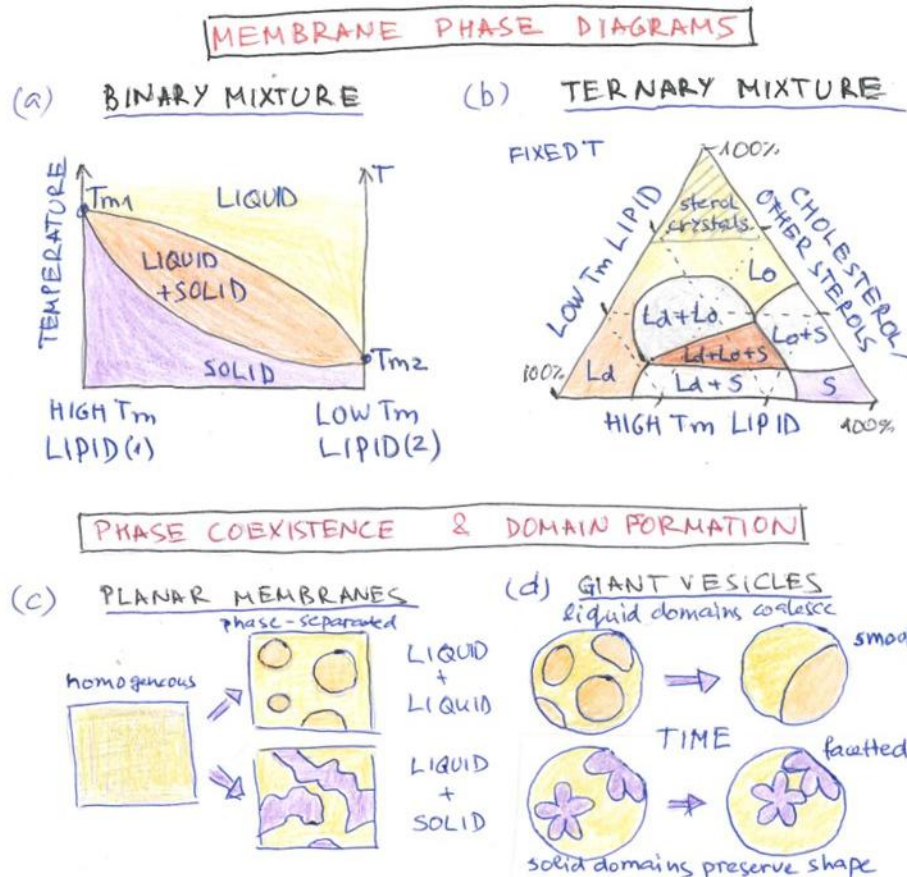 MEMBRANE PHASE DIAGRAMS
(a) BINARY MIXTURE
TEMPERATURE
Tm1
T
LIQUID
LIQUID
+SOLID
SOLID
Tm2
HIGH Tm
LIPID(1)
LOW Tm
LIPID(2)
(b) TERNARY MIXTURE
FIXED T
100%
LOW Tm LIPID
CHOLESTEROL/
OTHER STEROLS
sterol
crystals
Lo
Ld+Lo
Lo+S
Ld+Lo+S
Ld
Ld+S
S
100%
HIGH Tm LIPID
100%
PHASE COEXISTENCE & DOMAIN FORMATION
(c) PLANAR MEMBRANES
phase-separated
homogeneous
LIQUID
+
LIQUID
LIQUID
+
SOLID
(d) GIANT VESICLES
liquid domains coalesce
smoo
TIME
facetted
solid domains preserve shape